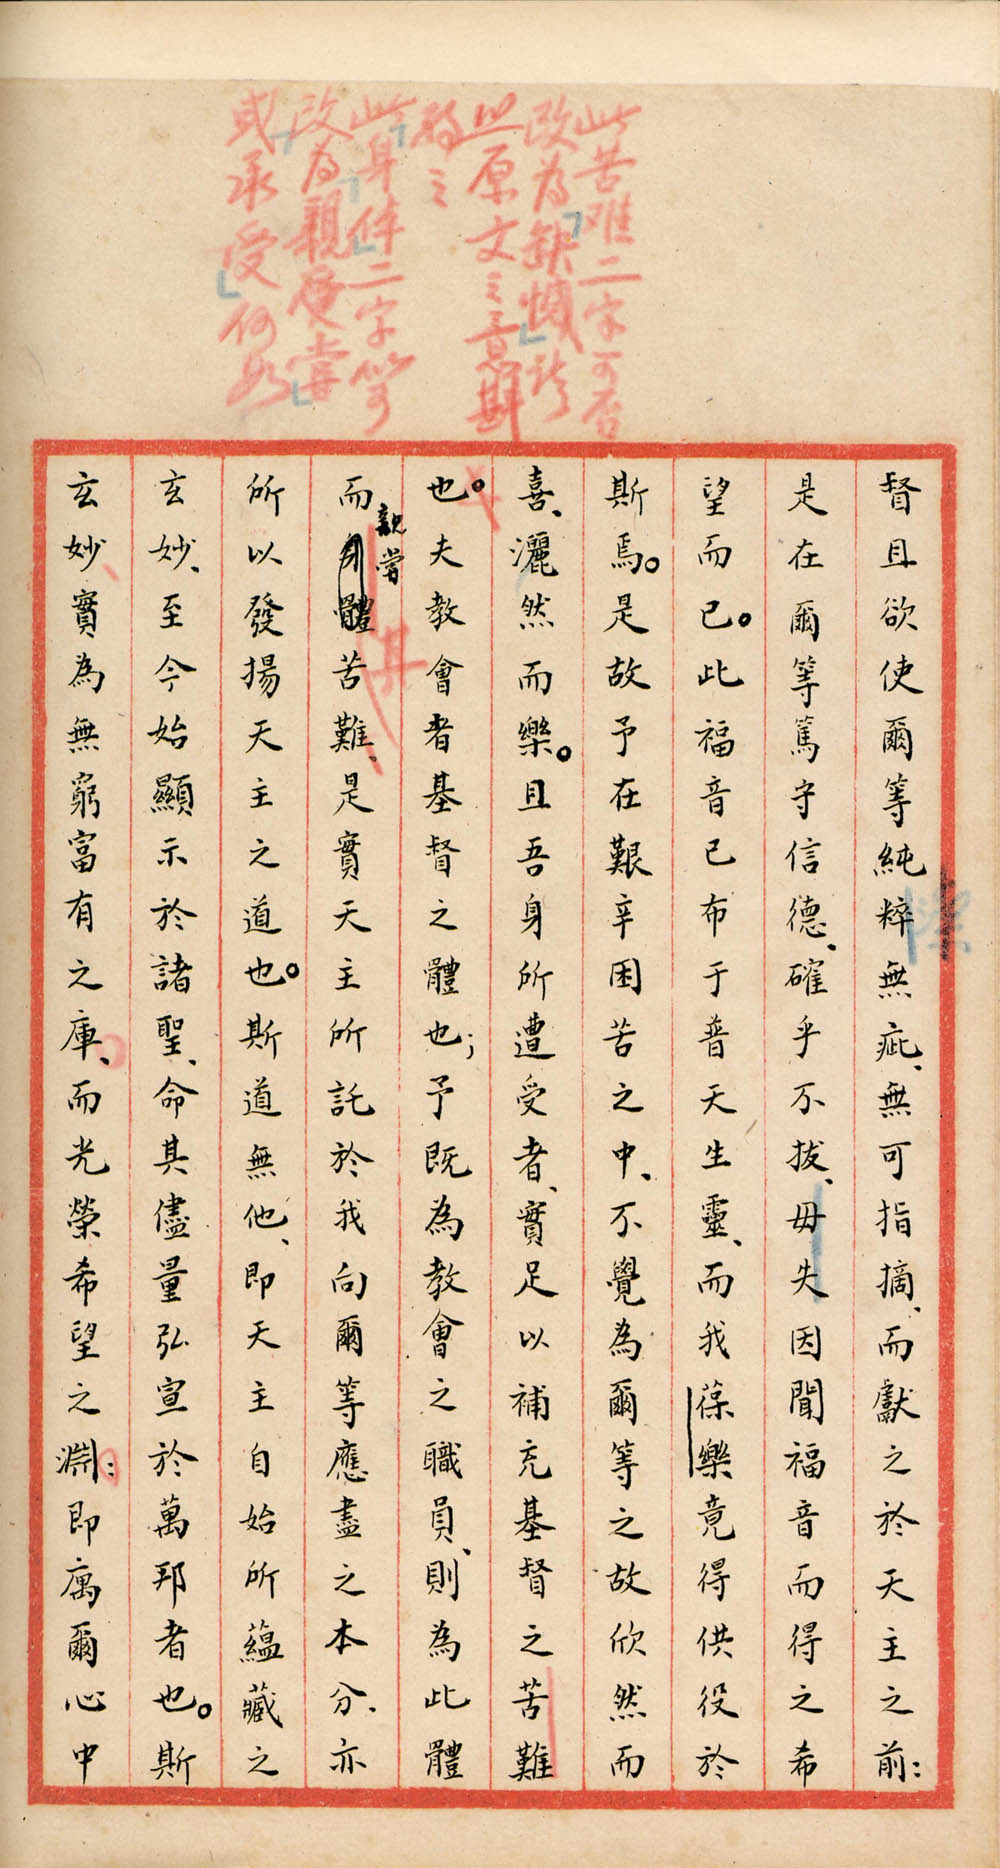 此苦难二字可否
改为「缺憾」請
以原文之意斟
酌之
此「身体」二字似可
改为「親受嘗」
或「承受」何如
督且欲使爾等純粹無疵、無可指摘、而獻之於天主之前：
潔
是在爾等篤守信德、確乎不拔、毋失因聞福音而得之希
望而已。此福音已布于普天生靈、而我葆樂竟得供役於
斯焉。是故予在艱辛困苦之中、不覺為爾等之故欣然而
喜、灑然而樂。且吾身所遭受者、實足以補充基督之苦難
也。夫教會者基督之體也；予既為教會之職員、則為此體
而身體苦難、是實天主所託於我向爾等應盡之本分、亦
親嘗
其
所以發揚天主之道也。斯道無他、即天主自始所蘊藏之
玄妙、至今始顯示於諸聖、命其儘量弘宣於萬邦者也。斯
玄妙實為無窮富有之庫、而光榮希望之淵：即寓爾心中